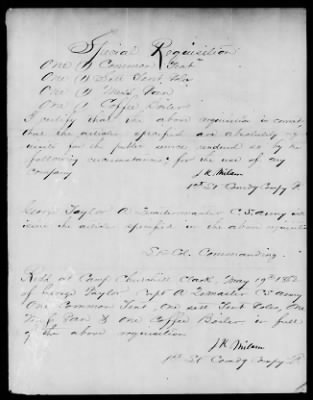 Special Requisition
One (1) Common Tent
One (1) Sett Tent Poles
One (1) Mess Pan
One (1) Coffee Boiler
I certify that the above requisition is correct
that the articles specified are absolutely req
uisite for the public service rendered so by the
following circumstances; for the use of my
company
J K Milam
1st Lt Comdg Compy
George Taylor A Quartermaster C S Army will
issue the articles specified in the above requisition
Lt Col. Commanding
Recd at Camp Churchill Clark May 19th 1862
of George Taylor Capt A Qrmaster C S Army
One Common Tent, One sett Tent Poles, One
Pan & one Coffee Boiler in full
of the above requisition
J K Milam
1st Lt Comdg Compy